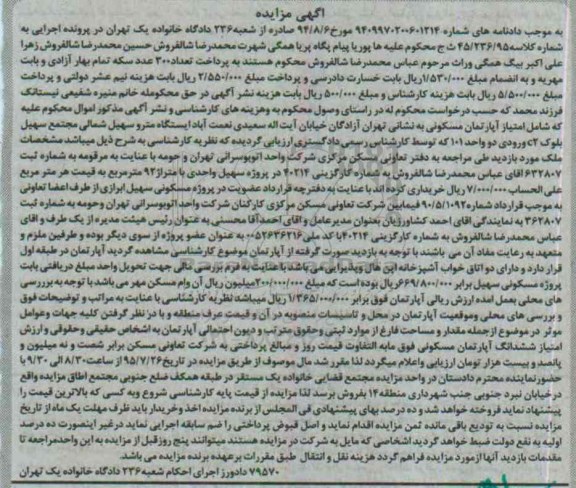 آگهی مزایده
به موجب دادنامه های شماره ۹۴۰۹۹۷۰۲۰۰۶۰۱۲۱۴ مورخ ۹۴/۸/۶ صادره از شعبه ۲۳۶ دادگاه خانواده یک تهران در پرونده اجرایی به
شماره کلاسه ۴۵/۲۳۶/۹۵ ث ج محکوم علیه ها پوریا پیام پگاه پریا همگی شهرت محمدرضا شالفروش حسین محمدرضا شالفروش زهرا
علی اکبر بیگ همگی وراث مرحوم عباس محمدرضا شالفروش محکوم هستند به پرداخت تعداد ۳۰۰ عدد سکه تمام بهار آزادی و بابت
مهریه و به انضمام مبلغ ۱/۵۳۰/۰۰۰ ریال بابت خسارت دادرسی و پرداخت مبلغ ۲/۵۵۰/۰۰۰ ریال بابت هزینه نیم عشر دولتی و پرداخت
مبلغ ۵/۵۰۰/۰۰۰ ریال بابت هزینه کارشناس و مبلغ ۵۰۰/۰۰۰ ریال بابت هزینه نشر آگهی در حق محکومله خانم منیره شفیعی نیستانک
فرزند محمد که حسب درخواست محکوم له در راستای وصول محکوم به وهزینه های کارشناسی و نشر آگهی مذکور اموال محکوم علیه
که شامل امتیاز آپارتمان مسکونی به نشانی تهران آزادگان خیابان آیت اله سعیدی نعمت آباد ایستگاه مترو سهیل شمالی مجتمع سهیل
بلوک c۲ ورودی دو واحد ۱۰۱ که توسط کارشناس رسمی دادگستری ارزیابی گردیده که نظریه کارشناسی به شرح ذیل میباشد مشخصات
ملک مورد بازدید طی مراجعه به دفتر تعاونی مسکن مرکزی شرکت واحد اتوبوسرانی تهران و حومه با عنایت به مرقومه به شماره ثبت
۶۳۲۸۰۷ اقای عباس محمدرضا شالفروش به شماره کارگزینی ۴۰۲۱۴ در پروژه سهیل واحدی با متراژ ۹۲ مترمربع به قیمت هر متر مربع
علی الحساب ۷/۰۰۰/۰۰۰ ریال خریداری کرده اند با عنایت به دفترچه قرارداد عضویت در پروژه مسکونی سهیل ابرازی از طرف اعضا تعاونی
به موجب قرارداد شماره ۹۰/۵/۱۰۹۲ فیمابین شرکت تعاونی مسکن مرکزی کارکنان شرکت واحد اتوبوسرانی تهران وحومه به شماره ثبت
۳۶۲۸۰۷ به نمایندگی اقای احمد کشاورزیان بعنوان مدیر عامل و اقای احمد آقا محسنی به عنوان رئیس هیئت مدیره از یک طرف و اقای
عباس محمدرضا شالفروش به شماره کارگزینی ۴۰۲۱۴ با کد ملی ۰۰۵۲۶۳۶۲۱۶ به عنوان عضو پروژه از سوی دیگر بوده و طرفین ملزم و
متعهد به رعایت مفاد آن می باشند با توجه به بازدید صورت گرفته از آپارتمان موضوع کارشناسی مشاهده گردید آپارتمان در طبقه اول
قرار دارد و دارای دو اتاق خواب آشپزخانه اپن هال وپذیرایی می باشد با عنایت به فرم بررسی مالی جهت تحویل واحد مبلغ دریافتی بابت
پروژه مسکونی سهیل برابر ۶۶۹/۸۰۰/۰۰۰ ریال بوده است که مبلغ ۲۰۰/۰۰۰/۰۰۰ میلیون ریال آن وام مسکن مهر می باشد با توجه به بررسی
های محلی بعمل امده ارزش ریالی آپارتمان فوق برابر ۱/۳۶۵/۰۰۰/۰۰۰ ریال میباشد نظریه کارشناسی با عنایت به مراتب و توضیحات فوق
و بررسی های محلی وموقعیت آپارتمان در محل و تاسیسات منصوبه در آن و قیمت عرف منطقه و با در نظر گرفتن کلیه جهات وعوامل
موثر در موضوع از جمله مقدار و مساحت فارغ از موارد ثبتی وحقوق مترتب و دیون احتمالی آپارتمان به اشخاص حقیقی وحقوقی و ارزش
امتیاز ششدانگ آپارتمان مسکونی فوق مابه التفاوت قیمت روز و مبالغ پرداختی به شرکت تعاونی مسکن برابر شصت و نه میلیون و
پانصد و بیست هزار تومان ارزیابی واعلام میگردد لذا مقرر شد مال موصوف از طریق مزایده در تاریخ ۹۵/۷/۲۶ از ساعت ۸/۳۰ الی ۹/۳۰ با
حضور نماینده محترم دادستان در واحد مزایده مجتمع قضایی خانواده یک مستقر در طبقه همکف ضلع جنوبی مجتمع اطاق مزایده واقع
در خیابان نبرد جنوبی جنب شهرداری منطقه ۱۴ بفروش برسد لذا مزایده از قیمت پایه کارشناسی شروع وبه کسی که بالاترین قیمت را
پیشنهاد نماید فروخته خواهد شد و ده درصد بهای پیشنهادی فی المجلس از برنده مزایده اخذ وخریدار باید ظرف مهلت یک ماه از تاریخ
مزایده نسبت به تودیع باقی مانده ثمن مزایده اقدام نماید و اصل قبوض پرداختی را ضم سابقه اجرایی نماید در غیر اینصورت ده درصد
اولیه به نفع دولت ضبط خواهد گردید اشخاصی که مایل به شرکت در مزایده هستند میتوانند پنج روز قبل از مزایده به این واحد مراجعه تا
مقدمات بازدید آنها از مورد مزایده فراهم گردد هزینه نقل و انتقال طبق مقررات بر عهده برنده مزایده می باشد.
۷۹۵۷۰ دادورز اجرای احکام شعبه ۲۳۶ دادگاه خانواده یک تهران